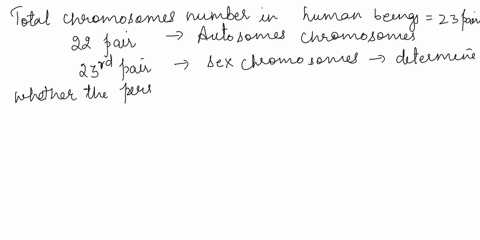 Total chromosomes number in human beings = 23 pair
22 pair → Autosomes chromosomes
23rd pair → sex chromosomes → determine
whether the pers